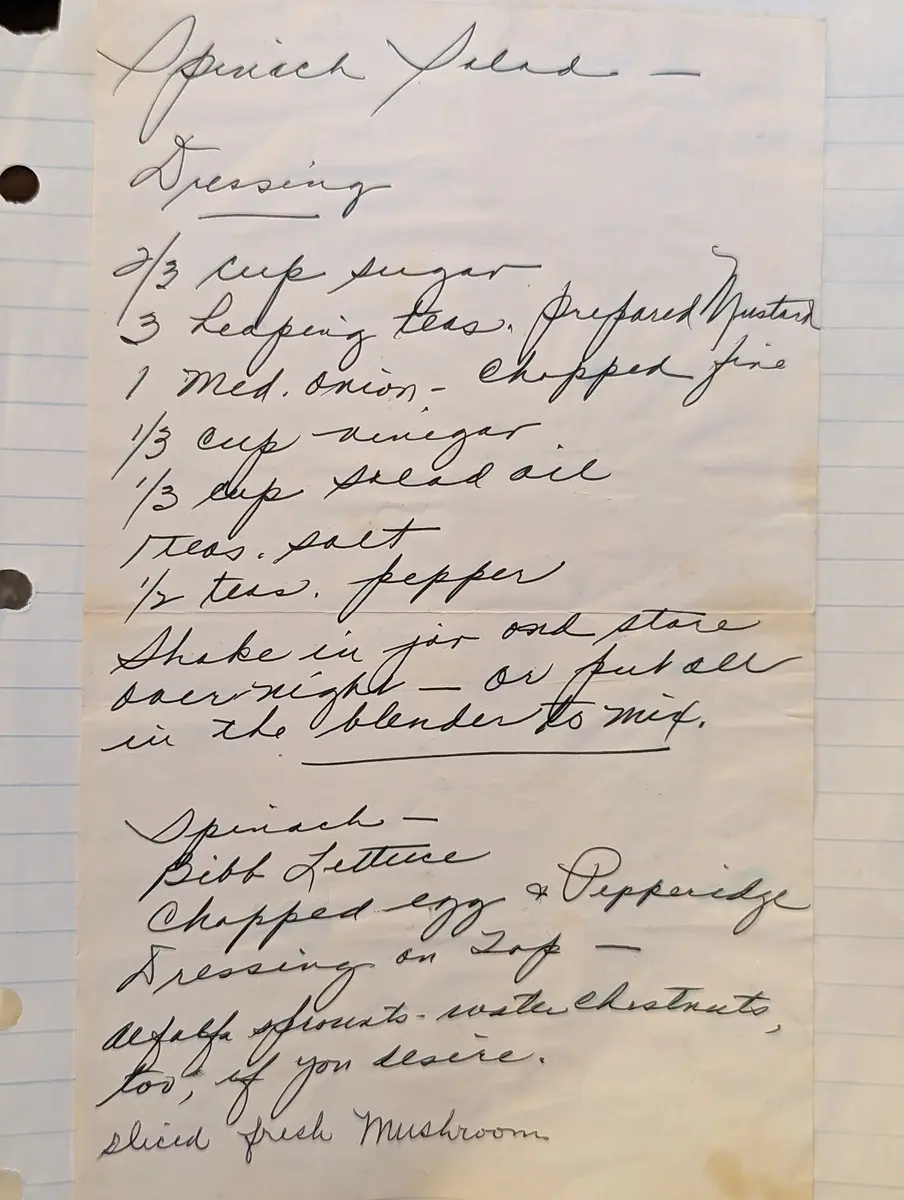 Spinach Salad —
Dressing
2/3 cup sugar
3 heaping teas. prepared Mustard
1 Med. onion - chopped fine
1/3 cup vinegar
1/3 cup salad oil
1 teas. salt
1/2 teas. pepper
Shake in jar and store
overnight — or put all
in the blender to mix.
Spinach —
Bibb Lettuce
Chopped egg & Pepperidge
Dressing on Top —
Alfalfa sprouts - water chestnuts,
too, if you desire.
sliced fresh Mushroom